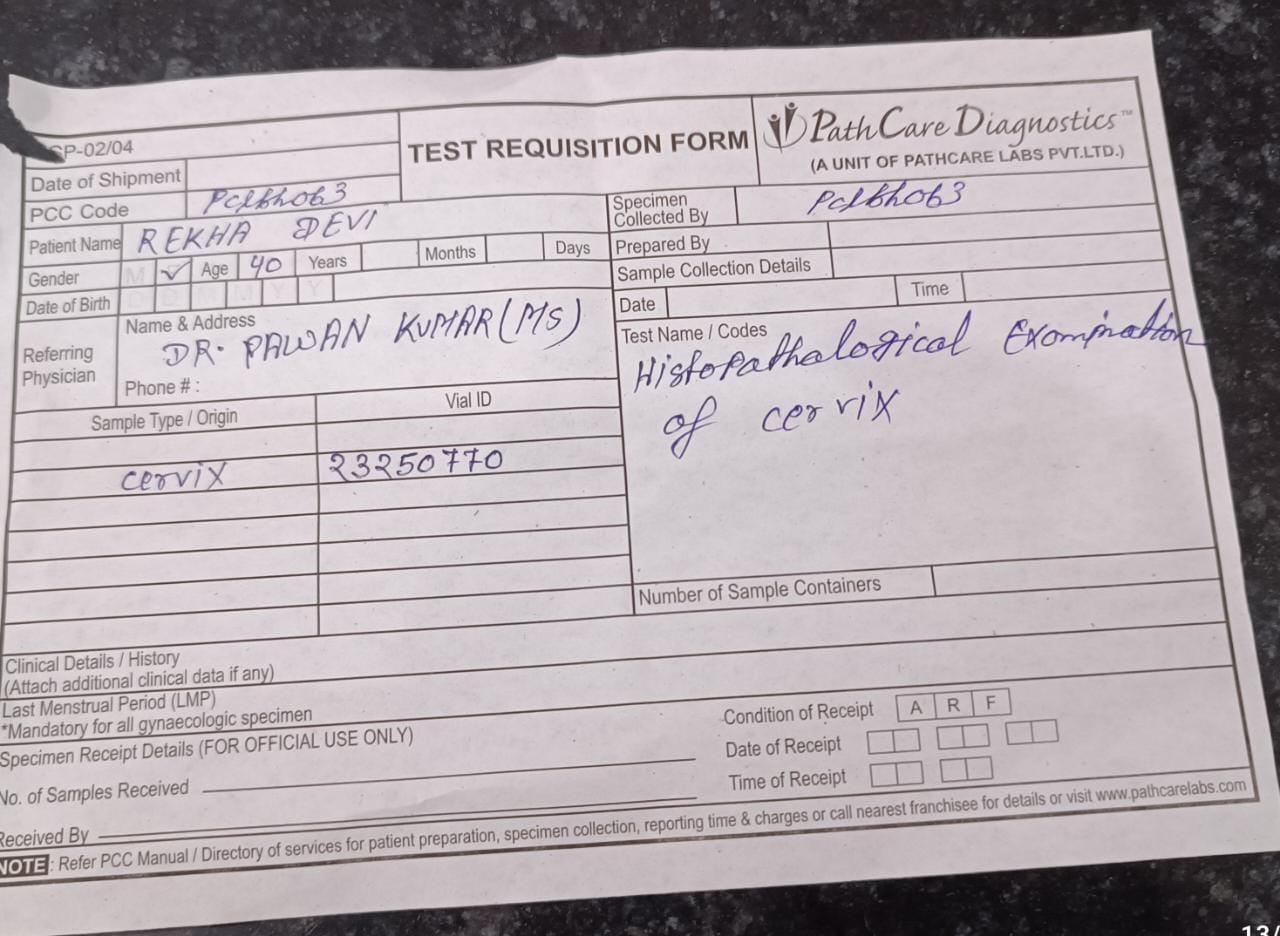 SP-02/04
TEST REQUISITION FORM
PathCare Diagnostics™
(A UNIT OF PATHCARE LABS PVT.LTD.)
Date of Shipment
PCC Code
Patient Name REKHA DEVI
Gender M ✓ Age 40 Years Months Days
Date of Birth D D M M Y Y
Referring Physician
Name & Address
DR. PAWAN KUMAR (MS)
Phone # :
Sample Type / Origin Vial ID
cervix 23250770
Specimen Collected By
Prepared By
Sample Collection Details
Date Time
Test Name / Codes
Histopathalogical Examination
of cervix
Number of Sample Containers
Clinical Details / History
(Attach additional clinical data if any)
Last Menstrual Period (LMP)
*Mandatory for all gynaecologic specimen
Specimen Receipt Details (FOR OFFICIAL USE ONLY)
No. of Samples Received
Received By
Condition of Receipt A R F
Date of Receipt
Time of Receipt
NOTE : Refer PCC Manual / Directory of services for patient preparation, specimen collection, reporting time & charges or call nearest franchisee for details or visit www.pathcarelabs.com